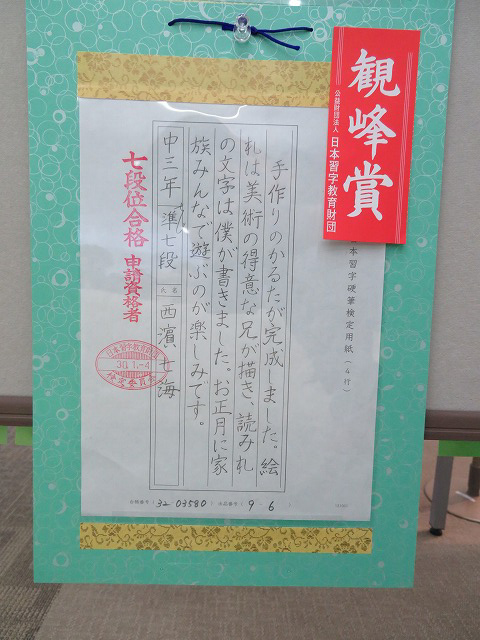 観峰賞
公益財団法人 日本習字教育財団
本習字硬筆検定用紙(4行)
手作りのかるたが完成しました。絵
札は美術の得意な兄が描き、読み札
の文字は僕が書きました。お正月に家
族みんなで遊ぶのが楽しみです。
中三年 準七段 氏名 西濵 七海
七段位合格 申請資格者
日本習字教育財団
30.1.-4
検定委員会
会員番号(32 03580) 出品番号(9-6)